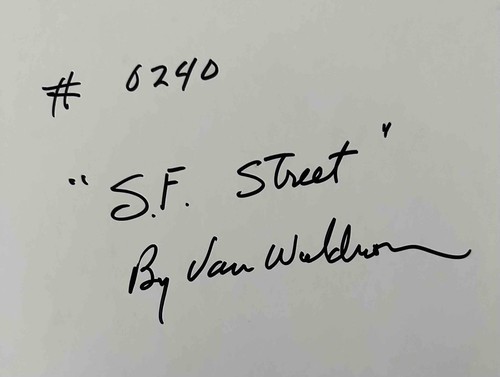 # 0240
"S.F. Street"
By Van Waldron